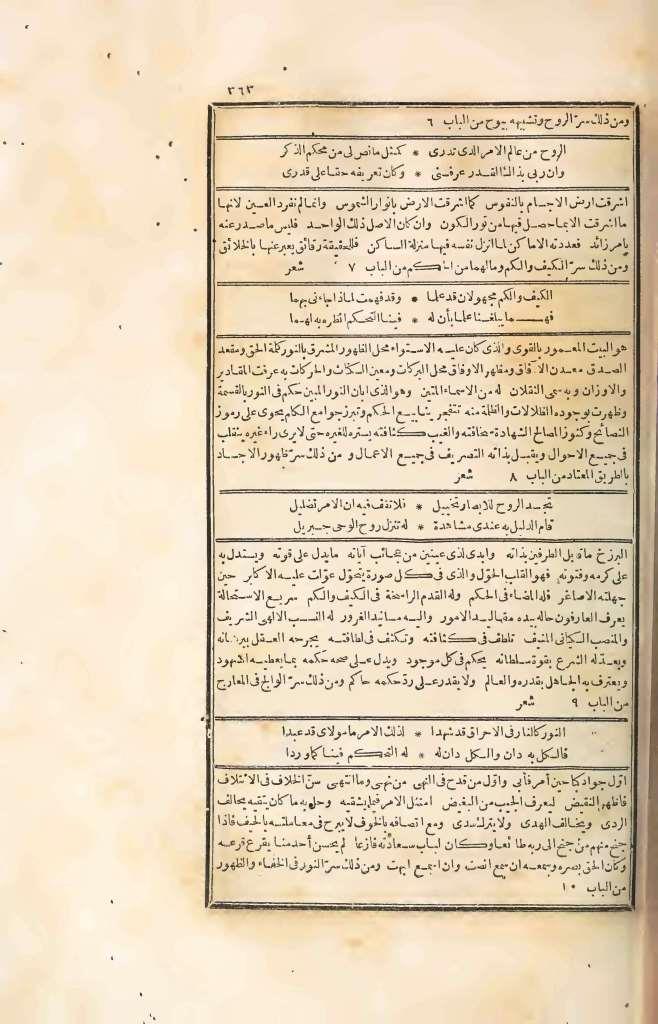 ٣٦٣
ومن ذلك سر الروح وتشبيهه بيوح من الباب ٦
الروح من عالم الامر الذى تدرى * كمثل ما نص لى من محكم الذكر
وان ربى بذاك القدر عرفنى * وكان تعريفه حقا على قدرى
اشرقت ارض الاجسام بالنفوس كما اشرقت الارض بانوار الشموس وانما لم نفرد العين لانها
ما اشرقت الا بما حصل فيها من نور الكون وان كان الاصل ذلك الواحد فليس ما صدر عنه
بامر زائد فعددته الاماكن لما انزل نفسه فيها منزلة الساكن فللحقيقة رقائق يعبر عنها بالخلائق
ومن ذلك سر الكيف والكم وما لهما من الحكم من الباب ٧ شعر
الكيف والكم مجهولان قد علما * وقد فهمت لماذا جاءنى بهما
فهما يبلغنا علما بأن له * فينا التحكم انظره به لهما
هو البيت المعمور بالقوى والذى كان عليه الاستواء محل الظهور المشرق بالنور كلمة الحق ومقعد
الصدق معدن الآفاق ومظهر الاوفاق محل البركات ومعين السكنات والحركات به عرفت المقادير
والاوزان وبه سمى الثقلان له من الاسماء المتين وهو الذى ابان النور المبين حكم فى النور بالقسمة
وظهرت بوجوده الظلالات والظلمة منه تتفجر ينابيع الحكم وتبرز جوامع الكلم يحوى على رموز
النصائح وكنوز المصالح الشهادة سخافته والغيب كثافته يستره للغيره حتى لا يرى راء غيره يتقلب
فى جميع الاحوال ويقبل بذاته التصريف فى جميع الاعمال ومن ذلك سر ظهور الاجساد
بالطريق المعتاد من الباب ٨ شعر
تجسد الروح للابصار تخييل * فلا تقف فيه ان الامر تضليل
قام الدليل به عندى مشاهدة * له تنزل روح الوحى جبريل
البرزخ ما قابل الطرفين بذاته وابدى لذى عينين من عجائب آياته ما يدل على قوته ويستدل به
على كرمه وفتوته فهو القلب الحول والذى فى كل صورة يتحول عولت عليه الاكابر حين
جهلته الاصاغر فله المضاء فى الحكم وله القدم الراسخة فى الكيف والكم سريع الاستحالة
يعرف العارفون حاله بيده مقاليد الامور واليه مسانيد الغرور له النسب الالهى الشريف
والمنصب الكيانى المنيف تلطف فى كثافته وتكثف فى لطافته يجرحه العقل ببرهانه
ويعدله الشرع بقوة سلطانه يحكم فى كل موجود ويدل على صحة حكمه بما يعطيه الشهود
ويعترف به الجاهل بقدره والعالم ولا يقدر على رد حكمه حاكم ومن ذلك سر الوالج فى المعارج
من الباب ٩ شعر
النور كالنار فى الاحراق قد شهدا * لذلك الامر ما مولاى قد عبدا
فالكل به دان والكل دان له * له التحكم فينا كما وردا
اول جواد كبا حين أمر فأبى واول من قدح فى النهى من نهى وما انتهى سن الخلاف فى الائتلاف
فاظهر النقيض ليعرف الحبيب من البغيض امتثل الامر فيما يشقيه وحل به ما كان يتقيه يحالف
الردى ويخالف الهدى ولا يترك سدى ومع اتصافه بالخوف لا يبرح فى معاملته بالحيف فاذا
جنح منهم من جنح الى ربه طائعا وكان لباب سعادته قارعا لم يحسن أحد منا يقرع قرعه
وكان الحق بصره وسمعه ان سمع انصت وان اسمع ابهت ومن ذلك سر النور فى الخفاء والظهور
من الباب ١٠